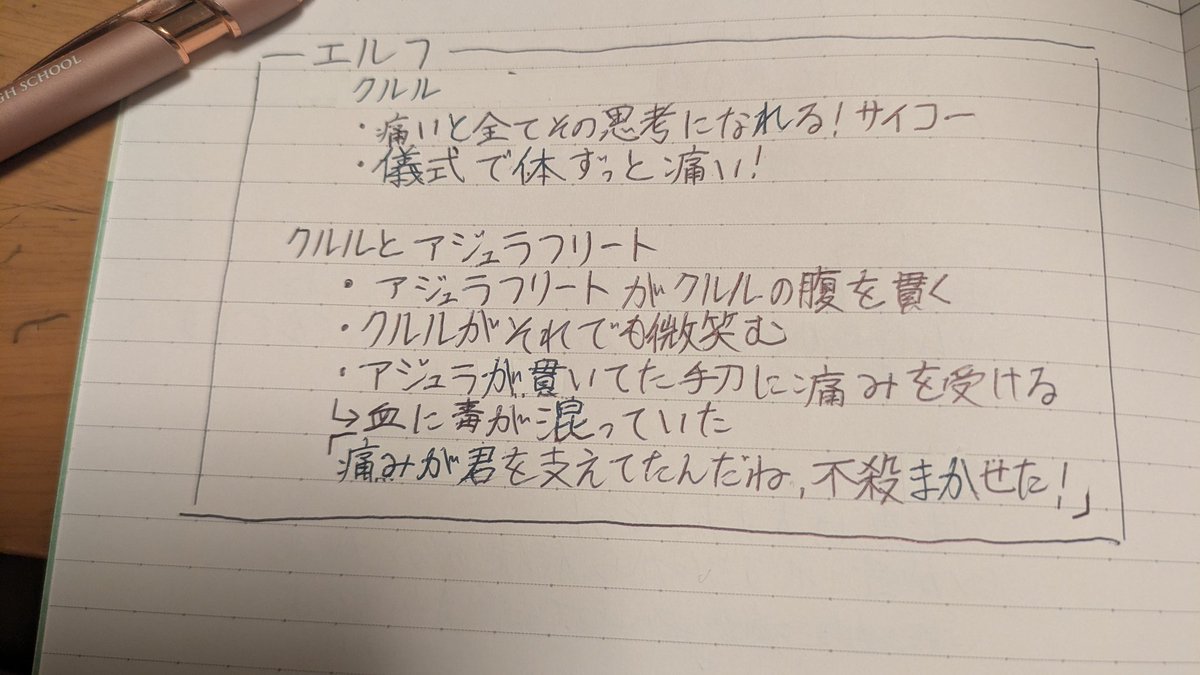 GH SCHOOL
エルフ
クルル
・痛いと全てその思考になれる！サイコー
・儀式で体ずっと痛い！
クルルとアジュラフリート
・アジュラフリートがクルルの腹を貫く
・クルルがそれでも微笑む
・アジュラが貫いてた手刀に痛みを受ける
↳血に毒が混っていた
「痛みが君を支えてたんだね,不殺まかせた！」